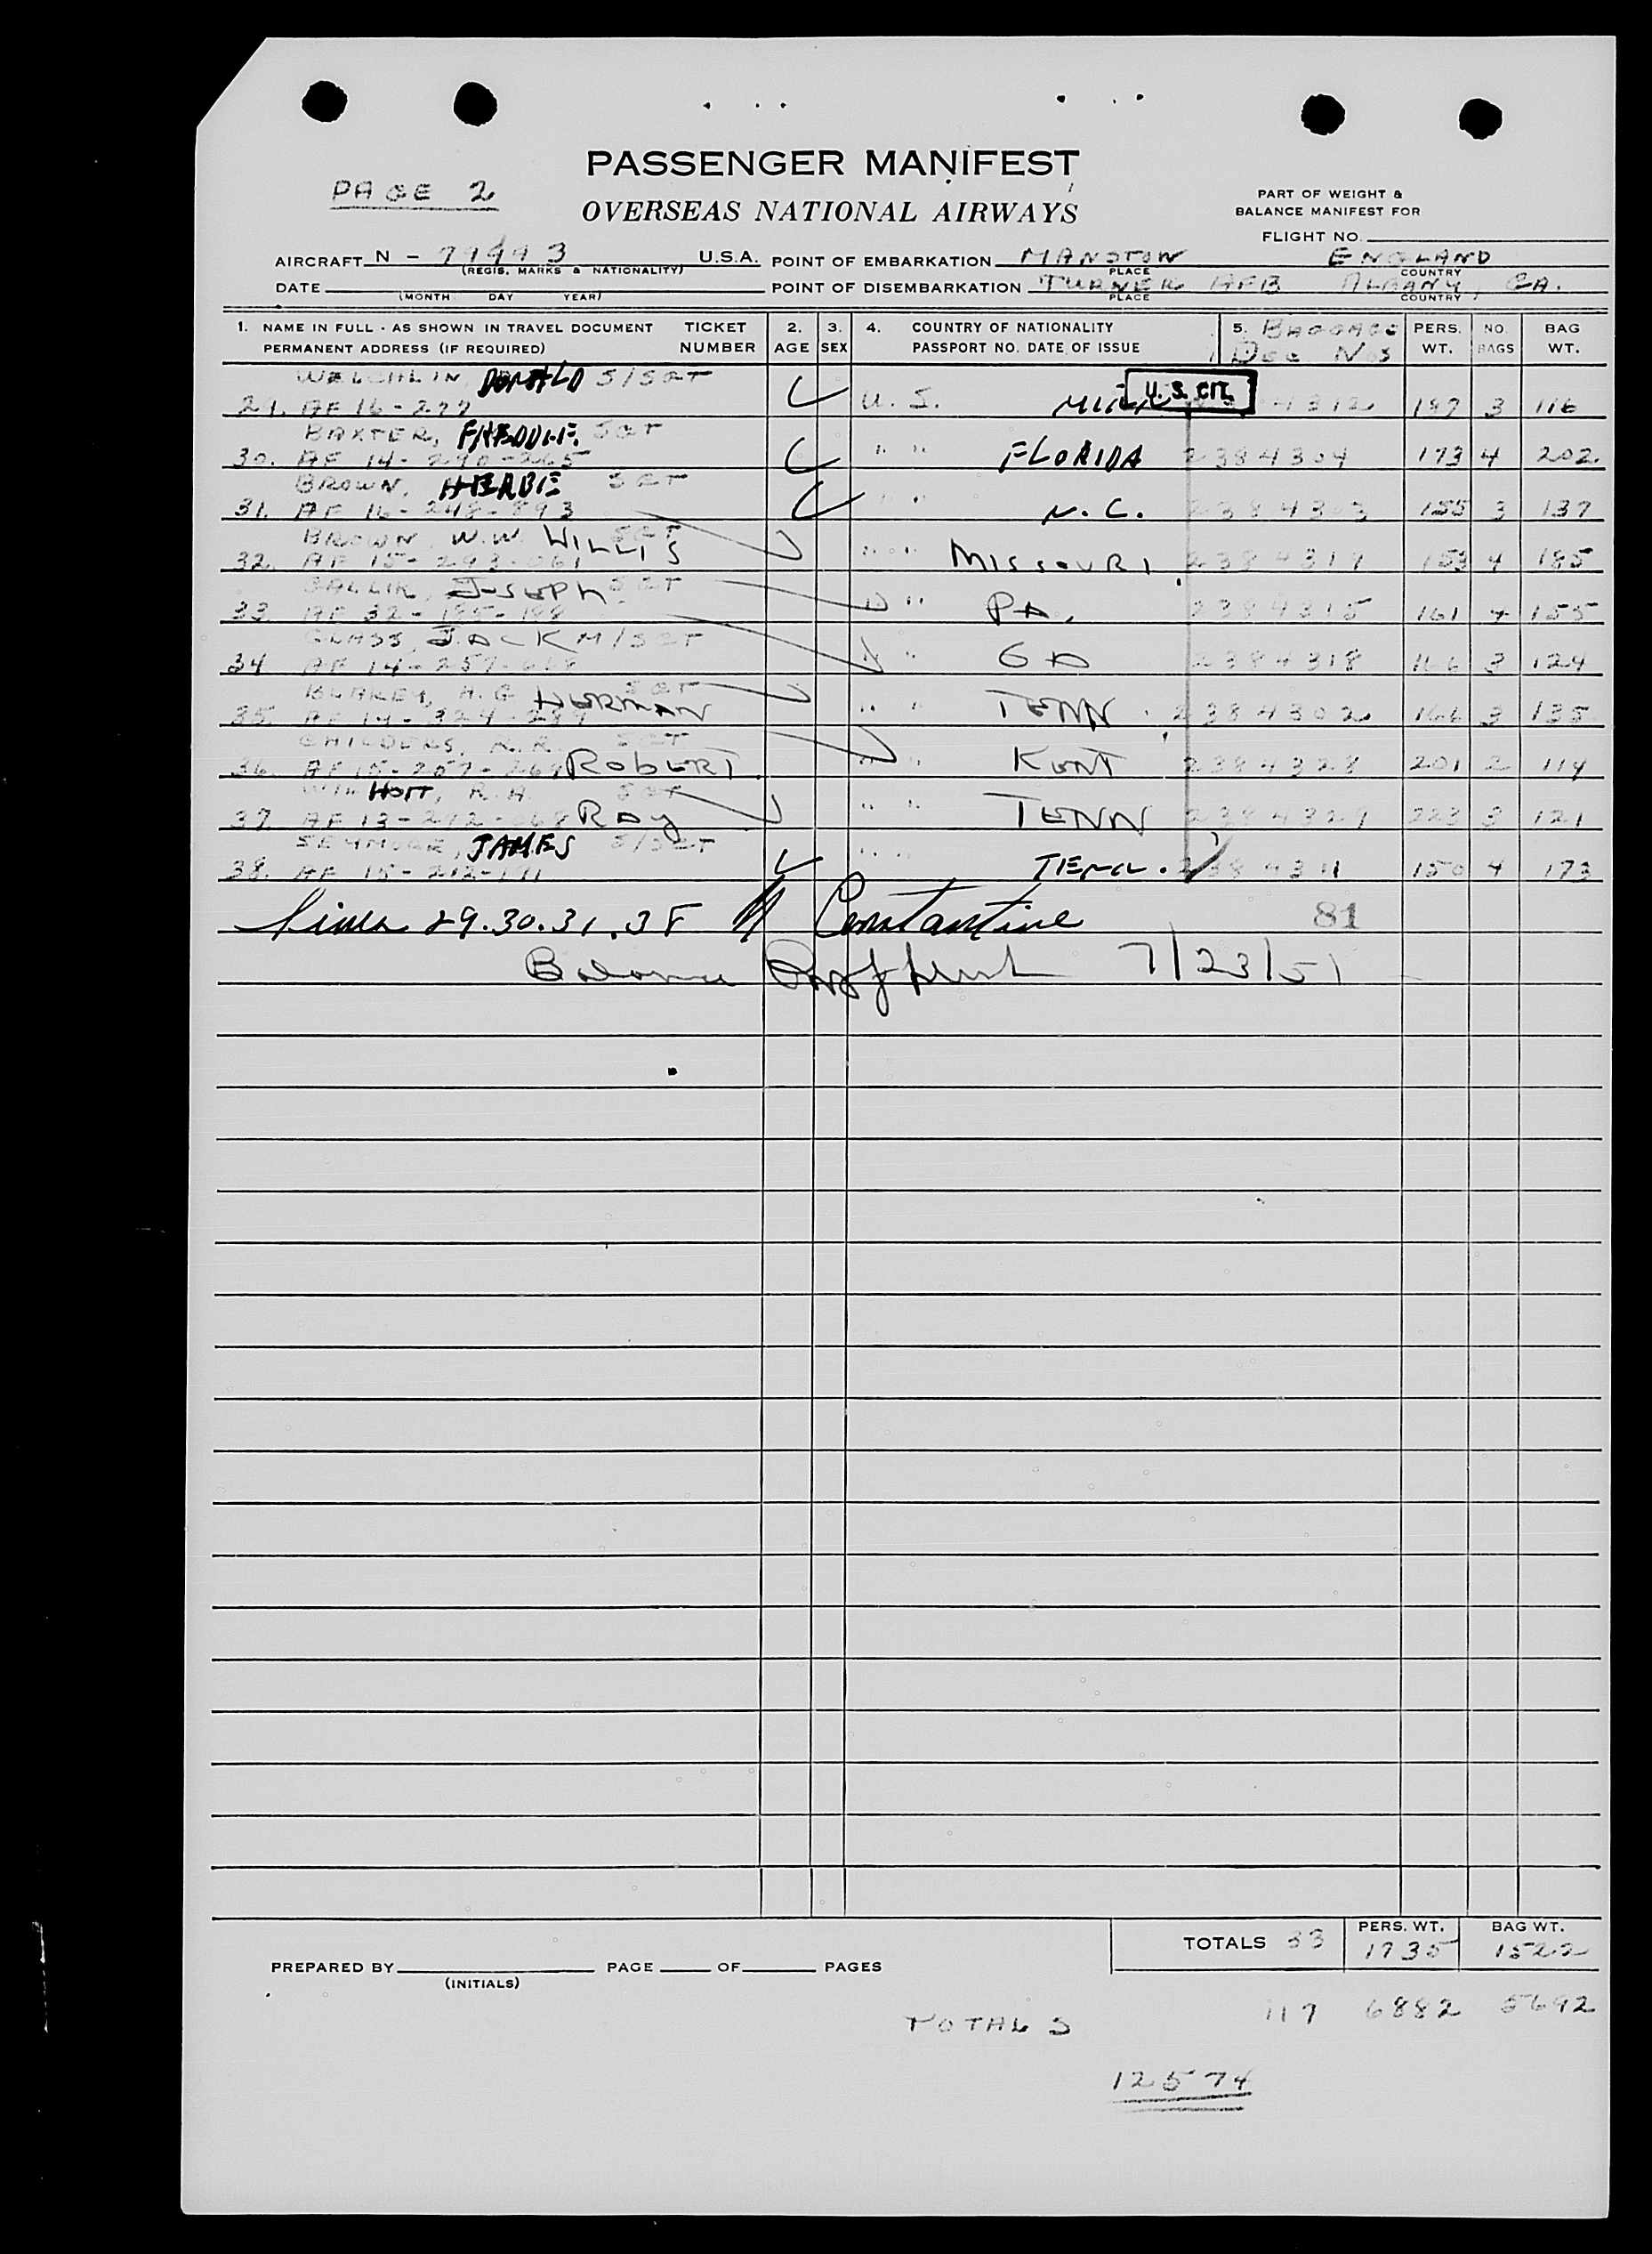 PASSENGER MANIFEST
PAGE 2
OVERSEAS NATIONAL AIRWAYS
PART OF WEIGHT &
BALANCE MANIFEST FOR
FLIGHT NO.
AIRCRAFT N - 79993 U.S.A. POINT OF EMBARKATION MANSTON ENGLAND
(REGIS. MARKS & NATIONALITY) PLACE COUNTRY
DATE POINT OF DISEMBARKATION TURNER AFB ALBANY, GA.
(MONTH DAY YEAR) PLACE COUNTRY
1. NAME IN FULL - AS SHOWN IN TRAVEL DOCUMENT TICKET 2. 3. 4. COUNTRY OF NATIONALITY 5. BAGGAGE PERS. NO. BAG
PERMANENT ADDRESS (IF REQUIRED) NUMBER AGE SEX PASSPORT NO. DATE OF ISSUE Dec Nos WT. BAGS WT.
WELCHLIN, DONALD S/SGT
29. AF 16-277 U.S. MICH U.S. CIT. 4312 187 3 116
BAXTER, SGT
30. AF 14-290-265 " " FLORIDA 2384304 173 4 202
BROWN, HERBIE SGT
31. AF 16-248-893 " " N.C. 2384303 155 3 137
BROWN, W.W. WILLIS SGT
32. AF 15-293-061 " " MISSOURI 2384317 153 4 185
JOSEPH SGT
33. AF 32-185-188 " " PA. 2384315 161 4 155
GLASS, JACK M/SGT
34 AF 14-257-668 " " GA 2384318 166 3 124
BLAKEY, H.G. HERMAN SGT
35. AF 14-324-289 " " TENN. 2384302 166 3 135
CHILDERS, R.R. SGT
36. AF 15-257-269 ROBERT " " KENT 2384328 201 2 114
HOIT, R.A. SGT
37. AF 13-212-068 RAY " " TENN 2384329 223 3 121
SEYMOUR, JAMES S/SGT
38. AF 15-212-171 " " TENN. 2384311 150 4 173
Lines 29.30.31.38 Constantine 81
Balance 7/23/51
TOTALS 33 PERS. WT. 1735 BAG WT. 1522
PREPARED BY PAGE OF PAGES
(INITIALS)
TOTALS 117 6882 5692
12574